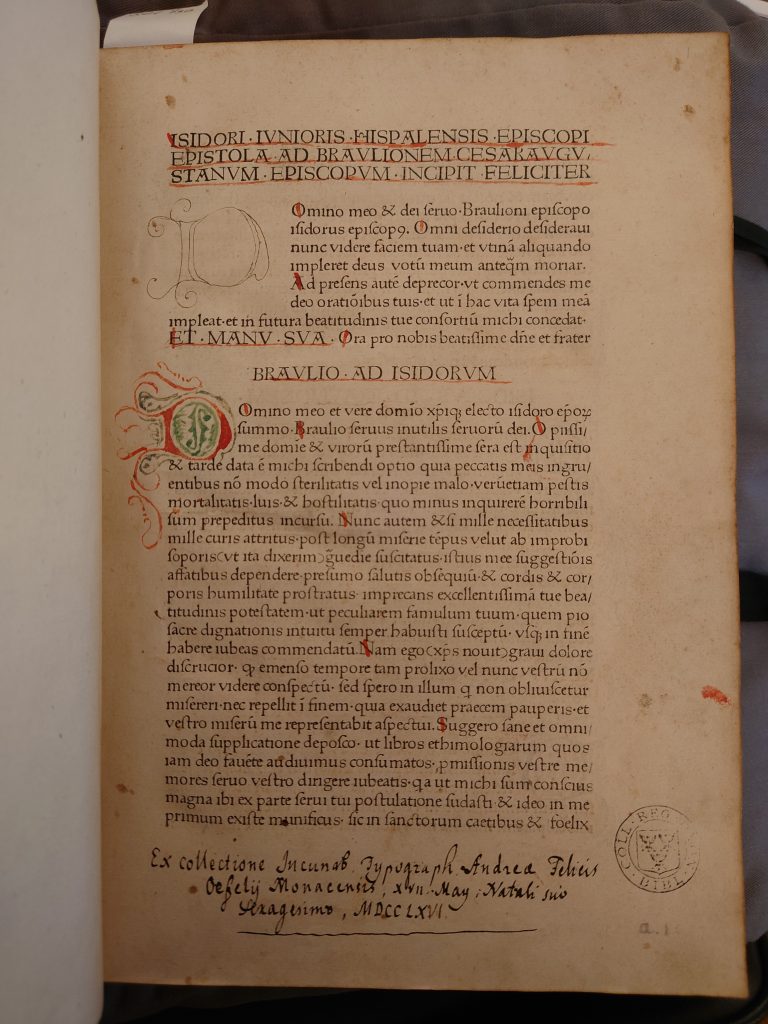 ISIDORI·IVNIORIS·HISPALENSIS·EPISCOPI
EPISTOLA·AD BRAVLIONEM·CESARAVGV,
STANVM·EPISCOPVM·INCIPIT FELICITER
Omino meo & dei seruo·Braulioni episcopo
isidorus episcopꝯ. Omni desiderio desideraui
nunc videre faciem tuam·et vtinā aliquando
impleret deus votū meum anteq̃m moriar.
Ad presens autē deprecor·vt commendes me
deo oratiōibus tuis·et ut ī hac vita spem meā
impleat·et in futura beatitudinis tue consortiū michi concedat·
ET·MANV·SVA·Ora pro nobis beatissime dñe et frater
BRAVLIO·AD ISIDORVM
D Omino meo et vere domīo xp̄iq; electo isidoro ep̄oꝝ
summo·Braulio seruus inutilis seruorū dei. O piissi/
me domīe & virorū prestantissime sera est inquisitio
& tarde data ē michi scribendi optio quia peccatis meis ingru/
entibus nō modo sterilitatis vel inopie malo·verūetiam pestis
mortalitatis·luis·& hostilitatis·quo minus inquirerē horribili
sum prepeditus incursu. Nunc autem &si mille necessitatibus
mille curis attritus·post longū miserie tēpus velut ab improbi
soporis(vt ita dixerim)g̃uedie suscitatus·istius mee suggestiōis
affatibus dependere·presumo salutis obsequiū·& cordis & cor/
poris humilitate prostratus· imprecans excellentissimā tue bea/
titudinis potestatem·ut peculiarem famulum tuum·quem pio
sacre dignationis intuitu semper habuisti susceptū· vsq; in finē
habere iubeas commendatū. Nam ego(xp̄s nouit)graui dolore
discrucior· qꝫ emenso tempore tam prolixo vel nunc vestrū nō
mereor videre conspectū· sed spero in illum q̄ non obliuiscetur
misereri·nec repellit ī finem·quia exaudiet praecem pauperis·et
vestro miserū me representabit aspectui. Suggero sane et omni
moda supplicatione deposco· ut libros ethimologiarum quos
iam deo fauēte audiuimus consumatos·ꝓmissionis vestre me/
mores seruo vestro dirigere iubeatis·qa ut michi sum conscius
magna ibi ex parte serui tui postulatione sudasti·& ideo in me
primum existe munificus· sic in sanctorum caetibus & foelix
Ex collectione Incunab. Typograph. Andreæ Felicis
Oefelij Monacensis, xvii. May. Natali suo
Sexagesimo, MDCCLXVI.
COLL·REG
BIBL